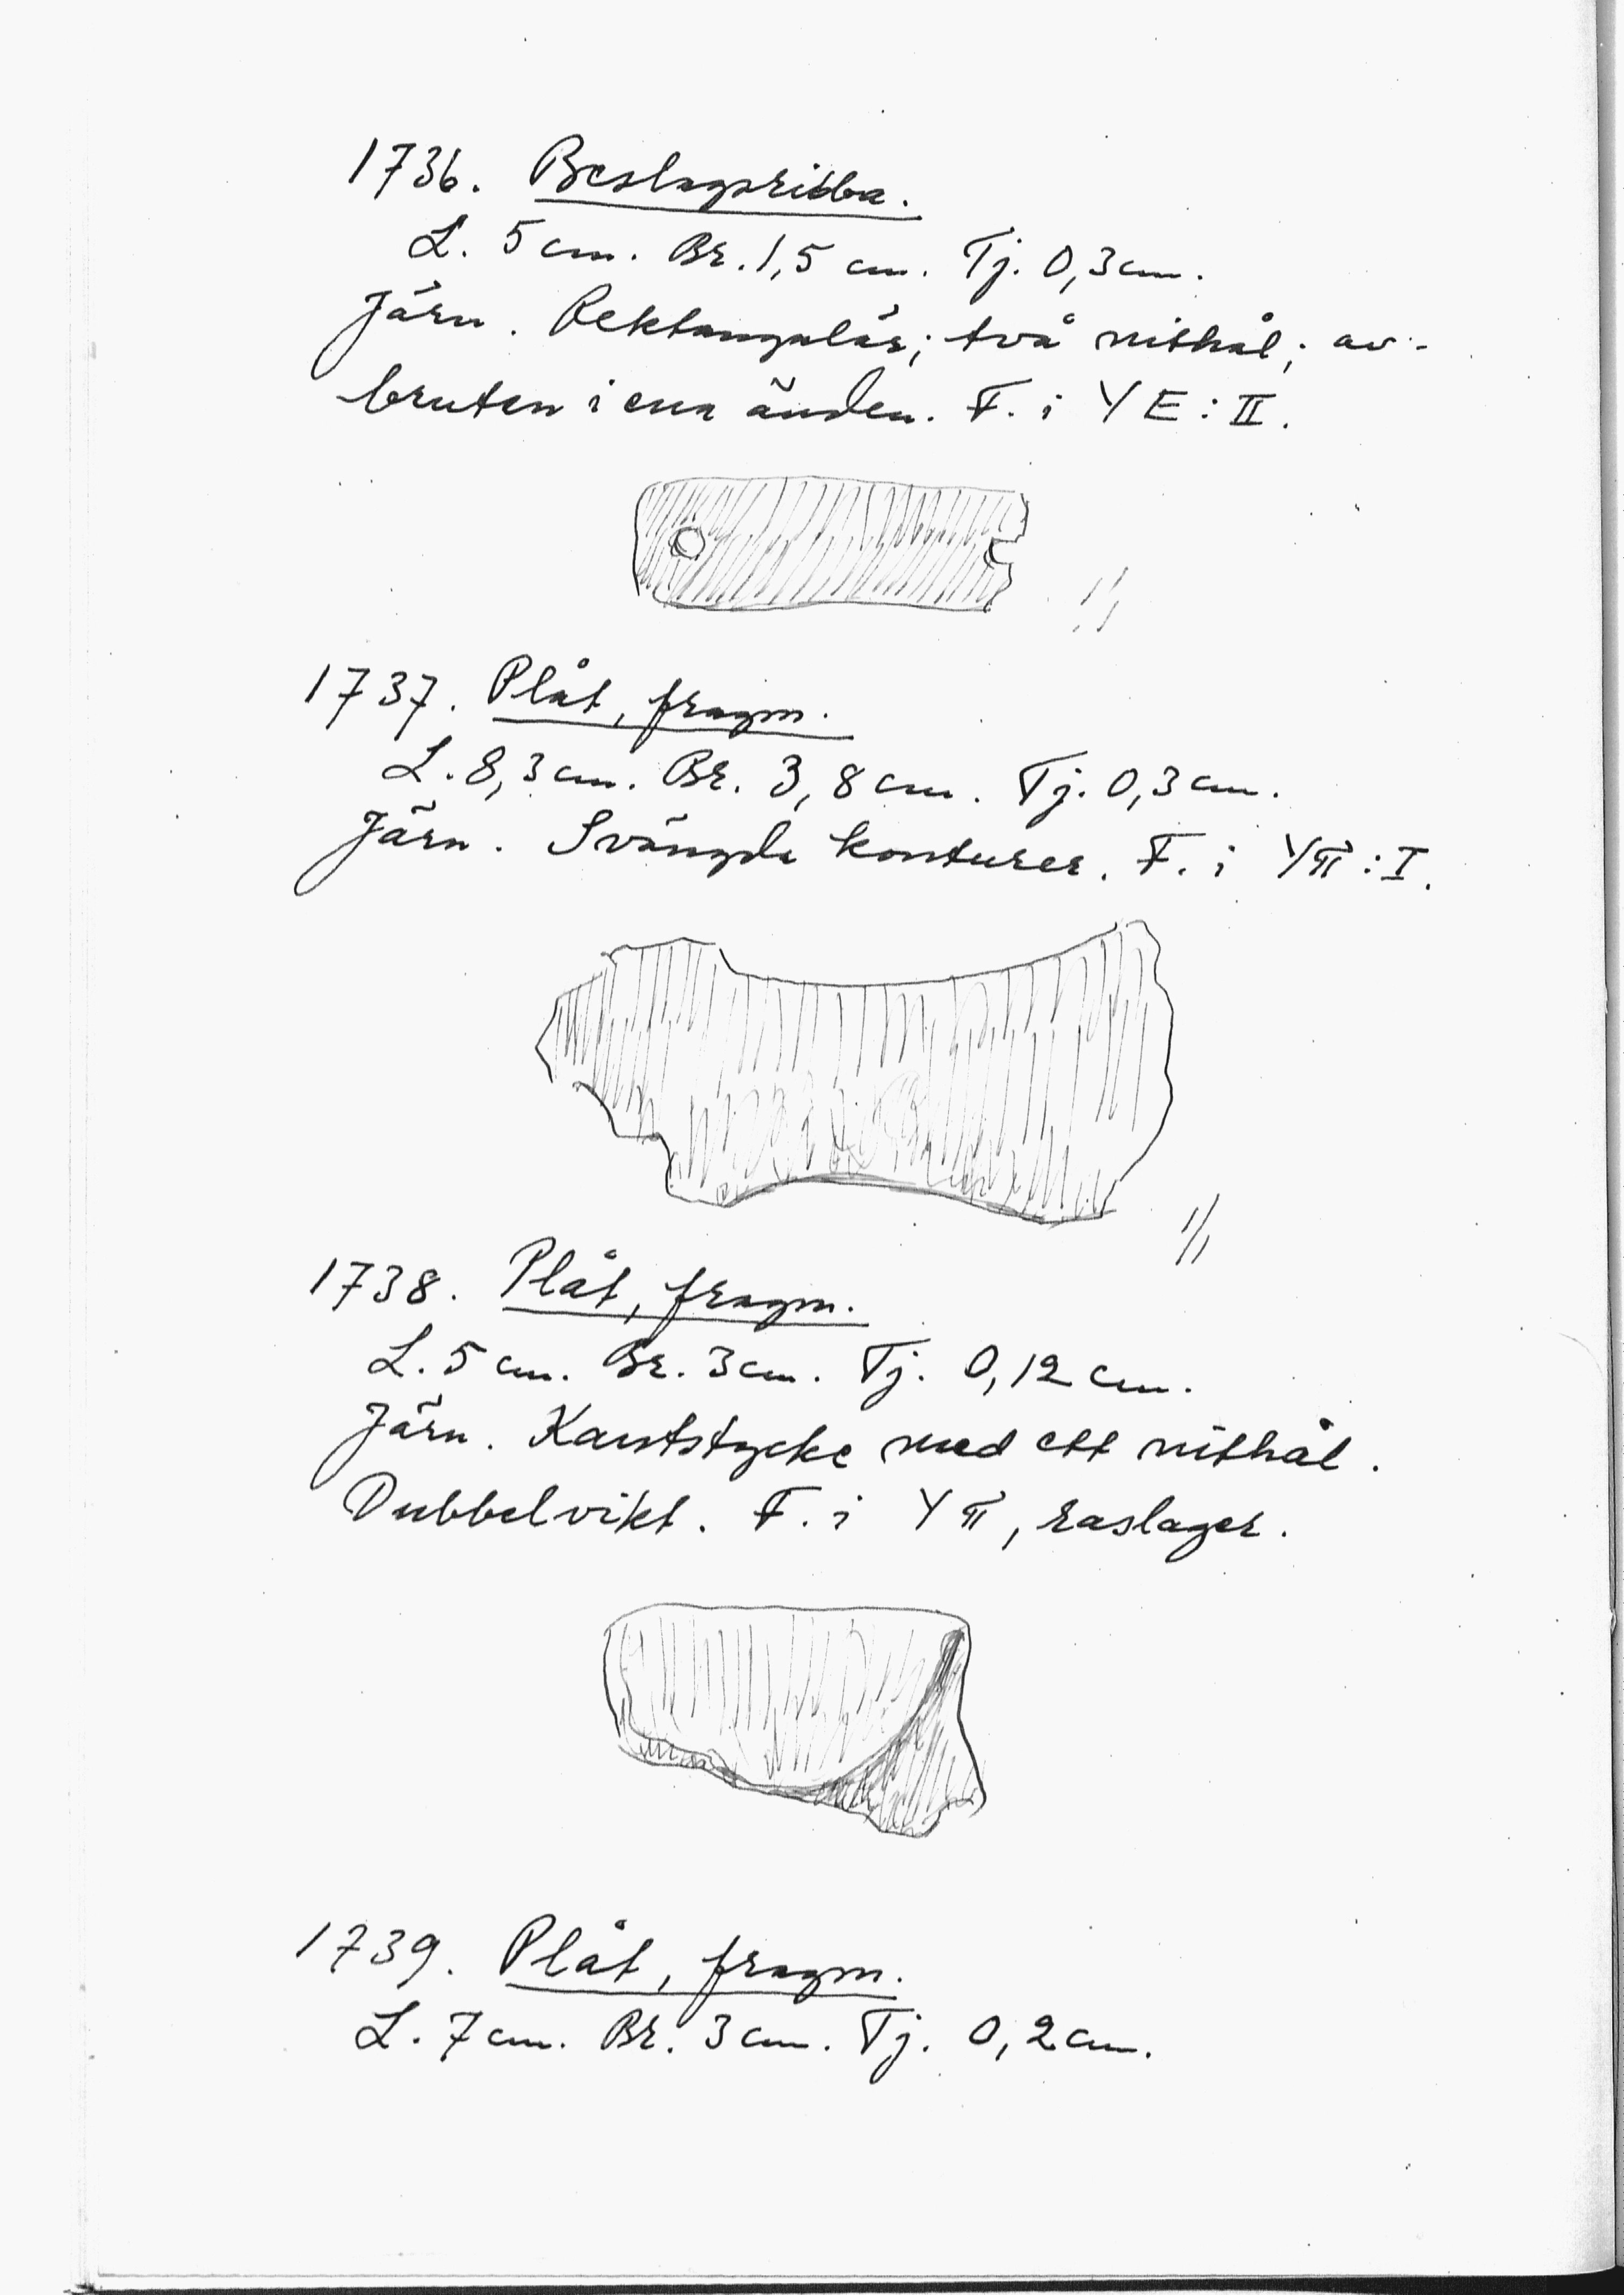 1736. Beslagsribba.
L. 5 cm. Br. 1,5 cm. Tj. 0,3 cm.
Järn. Rektangulär; två nithål; av-
bruten i ena änden. F. i Y E : II.
1/1
1737. Plåt, fragm.
L. 8,3 cm. Br. 3,8 cm. Tj. 0,3 cm.
Järn. Svängda konturer. F. i Y π : I.
1/1
1738. Plåt, fragm.
L. 5 cm. Br. 3 cm. Tj. 0,12 cm.
Järn. Kantstycke med ett nithål.
Dubbelvikt. F. i Y π, raslager.
1739. Plåt, fragm.
L. 7 cm. Br. 3 cm. Tj. 0,2 cm.